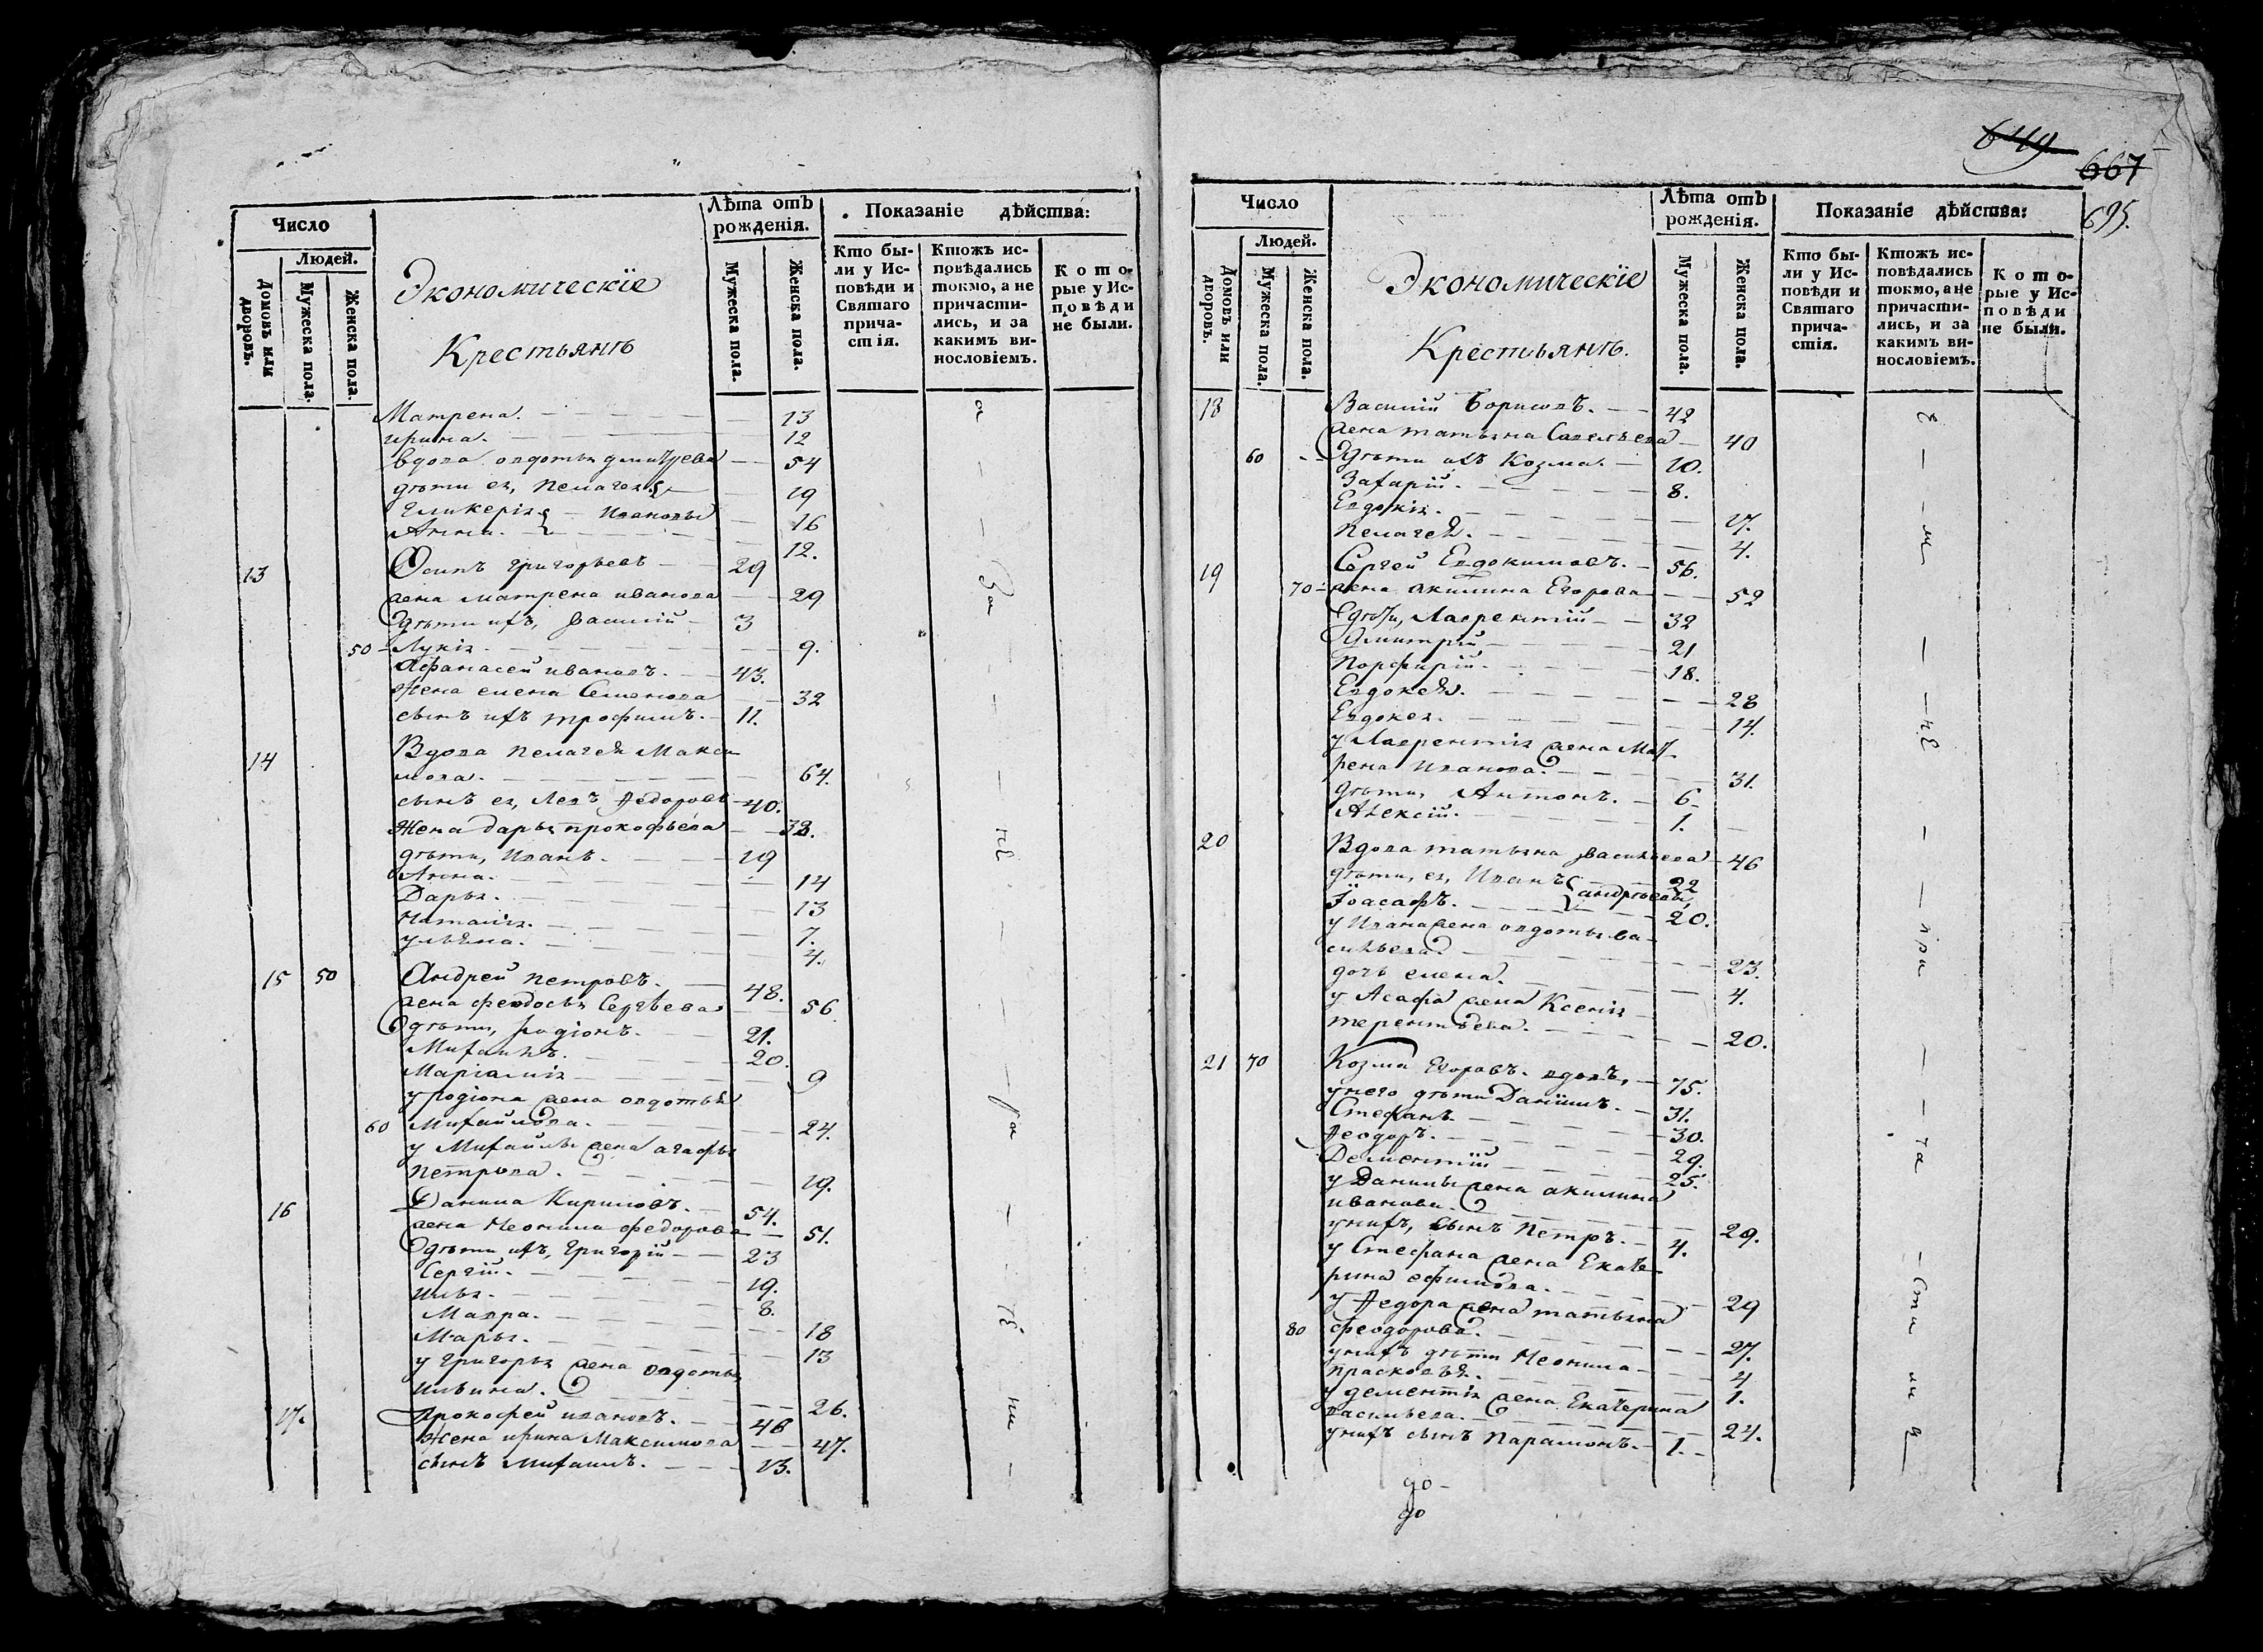 Число
Людей.
Домовъ или дворовъ.
Мужеска пола.
Женска пола.
Экономическiе
Крестьянъ
Лѣта отъ рожденiя.
Мужеска пола.
Женска пола.
Показанiе дѣйства:
Кто бы-
ли у Ис-
повѣди и
Святаго
прича-
стiя.
Ктожъ ис-
повѣдались
токмо, а не
причасти-
лись, и за
какимъ ви-
нословiемъ.
Кото-
рые у Ис-
повѣди
не были.
Матрена. 13
ирина. 12
вдова овдотья дмитрева 54
дѣти ея, пелагея 19
гликерiя Ивановы 16
Анна. 12.
13 Осипъ григорьевъ 29
жена матрена иванова 29
дѣти ихъ, василiй 3
50 Лукiя. 9.
Афанасей ивановъ. 43.
жена елена Семенова 32
сынъ ихъ трофимъ. 11.
14 Вдова пелагея Макси
мова. 64.
сынъ ея, Левъ Ѳедоровъ 40.
жена дарья прокофьева 38.
дѣти, Иванъ. 19
Анна. 14
Дарья. 13
Наталiя. 7.
ульяна. 4.
15 50 Андрей петровъ. 48.
жена феодосья Сергѣева 56
дѣти, радiонъ. 21.
Михаилъ. 20.
Марiамiя 9
у родiона жена овдотья
60 Михайлова. 24.
у Михайлы жена агафья
петрова. 19.
16 Данила Кириловъ. 54.
жена Неонила федорова 51.
дѣти ихъ, григорiй 23
Сергiй. 19.
илья. 8.
Мавра. 18
Марья. 13
у григорья жена овдотья
ильина. 26.
17. прокофей ивановъ. 48
жена ирина Максимова 47.
сынъ михаилъ. 13.
За
не
бы
тѣ
ни
649
667
695.
Число
Людей.
Домовъ или дворовъ.
Мужеска пола.
Женска пола.
Экономическiе
Крестьянъ.
Лѣта отъ рожденiя.
Мужеска пола.
Женска пола.
Показанiе дѣйства:
Кто бы-
ли у Ис-
повѣди и
Святаго
прича-
стiя.
Ктожъ ис-
повѣдались
токмо, а не
причасти-
лись, и за
какимъ ви-
нословiемъ.
Кото-
рые у Ис-
повѣди
не были.
18 Василiй борисовъ. 42
жена татьяна Савельева 40
60 дѣти ихъ Козма. 10.
Захарiй. 8.
Евдокiя. 17.
пелагея. 4.
19 Сергей Евдокимовъ. 56.
70 жена акилина Егорова 52
дѣти, Лаврентiй 32
Дмитрiй 21
порфирiй. 18.
Евдокея. 28
Евдокея. 14.
у Лаврентiя жена Мат
рена иванова. 31.
дѣти, Антонъ. 6.
Алексiй. 1.
20 Вдова татьяна васильева 46
дѣти, ея, Иванъ 22
андрѣевы,
Iоасафъ. 20.
у Ивана жена овдотья ва-
сильева 23.
дочь елена. 4.
у Асафа жена Ксенiя
терентьева. 20.
21 70 Козма Егоровъ. вдовъ, 75.
у него дѣти Данiилъ. 31.
Стефанъ. 30.
Ѳеодоръ. 29.
Дементiй 25.
у Данилы жена акилина
иванова. 29.
у нихъ, сынъ петръ. 4.
у Стефана жена Екате
рина ефимова. 29
у Ѳедора жена татьяна
80 феодорова. 27.
у нихъ дѣти Неонила 4
прасковья. 1.
у дементiя жена Екатерина
васильева. 24.
у нихъ сынъ парамонъ. 1.
е
м
нѣ
при
ча
сти
ли
до
до